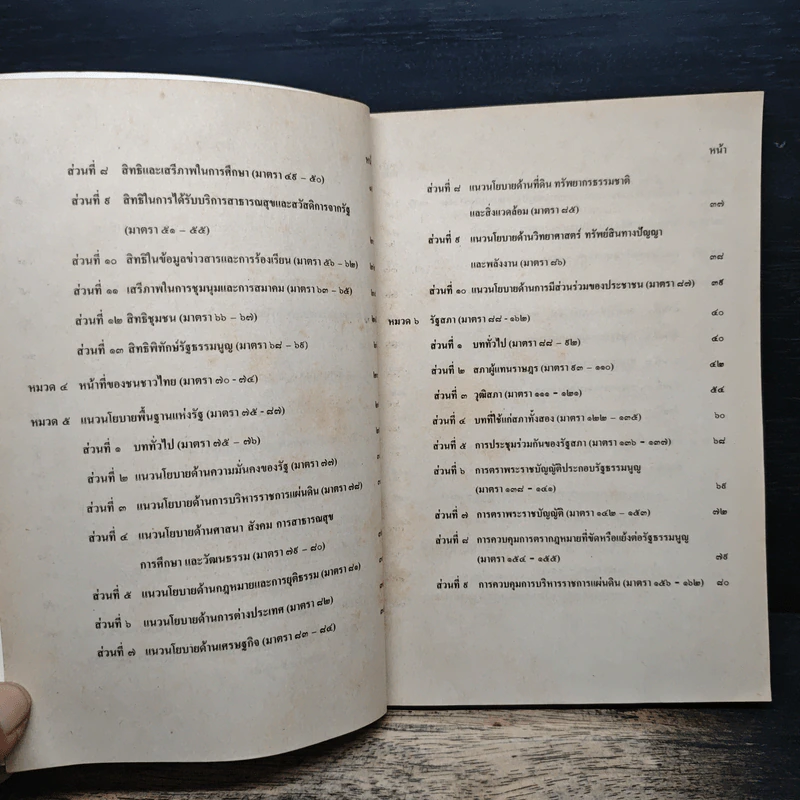 ส่วนที่ ๘ สิทธิและเสรีภาพในการศึกษา (มาตรา ๔๙ - ๕๐)
ส่วนที่ ๙ สิทธิในการได้รับบริการสาธารณสุขและสวัสดิการจากรัฐ
(มาตรา ๕๑ - ๕๕)
ส่วนที่ ๑๐ สิทธิในข้อมูลข่าวสารและการร้องเรียน (มาตรา ๕๖ - ๖๒)
ส่วนที่ ๑๑ เสรีภาพในการชุมนุมและการสมาคม (มาตรา ๖๓ - ๖๕)
ส่วนที่ ๑๒ สิทธิชุมชน (มาตรา ๖๖ - ๖๗)
ส่วนที่ ๑๓ สิทธิพิทักษ์รัฐธรรมนูญ (มาตรา ๖๘ - ๖๙)
หมวด ๔ หน้าที่ของชนชาวไทย (มาตรา ๗๐ - ๗๔)
หมวด ๕ แนวนโยบายพื้นฐานแห่งรัฐ (มาตรา ๗๕ - ๘๗)
ส่วนที่ ๑ บททั่วไป (มาตรา ๗๕ - ๗๖)
ส่วนที่ ๒ แนวนโยบายด้านความมั่นคงของรัฐ (มาตรา ๗๗)
ส่วนที่ ๓ แนวนโยบายด้านการบริหารราชการแผ่นดิน (มาตรา ๗๘)
ส่วนที่ ๔ แนวนโยบายด้านศาสนา สังคม การสาธารณสุข
การศึกษา และวัฒนธรรม (มาตรา ๗๙ - ๘๐)
ส่วนที่ ๕ แนวนโยบายด้านกฎหมายและการยุติธรรม (มาตรา ๘๑)
ส่วนที่ ๖ แนวนโยบายด้านการต่างประเทศ (มาตรา ๘๒)
ส่วนที่ ๗ แนวนโยบายด้านเศรษฐกิจ (มาตรา ๘๓ - ๘๔)
หน้า
ส่วนที่ ๘ แนวนโยบายด้านที่ดิน ทรัพยากรธรรมชาติ
และสิ่งแวดล้อม (มาตรา ๘๕) ๓๗
ส่วนที่ ๙ แนวนโยบายด้านวิทยาศาสตร์ ทรัพย์สินทางปัญญา
และพลังงาน (มาตรา ๘๖) ๓๘
ส่วนที่ ๑๐ แนวนโยบายด้านการมีส่วนร่วมของประชาชน (มาตรา ๘๗) ๓๙
หมวด ๖ รัฐสภา (มาตรา ๘๘ - ๑๖๒) ๔๐
ส่วนที่ ๑ บททั่วไป (มาตรา ๘๘ - ๙๒) ๔๐
ส่วนที่ ๒ สภาผู้แทนราษฎร (มาตรา ๙๓ - ๑๑๐) ๔๒
ส่วนที่ ๓ วุฒิสภา (มาตรา ๑๑๑ - ๑๒๑) ๕๔
ส่วนที่ ๔ บทที่ใช้แก่สภาทั้งสอง (มาตรา ๑๒๒ - ๑๓๕) ๖๐
ส่วนที่ ๕ การประชุมร่วมกันของรัฐสภา (มาตรา ๑๓๖ - ๑๓๗) ๖๘
ส่วนที่ ๖ การตราพระราชบัญญัติประกอบรัฐธรรมนูญ
(มาตรา ๑๓๘ - ๑๔๑) ๖๙
ส่วนที่ ๗ การตราพระราชบัญญัติ (มาตรา ๑๔๒ - ๑๕๓) ๗๒
ส่วนที่ ๘ การควบคุมการตรากฎหมายที่ขัดหรือแย้งต่อรัฐธรรมนูญ
(มาตรา ๑๕๔ - ๑๕๕) ๗๙
ส่วนที่ ๙ การควบคุมการบริหารราชการแผ่นดิน (มาตรา ๑๕๖ - ๑๖๒) ๘๐